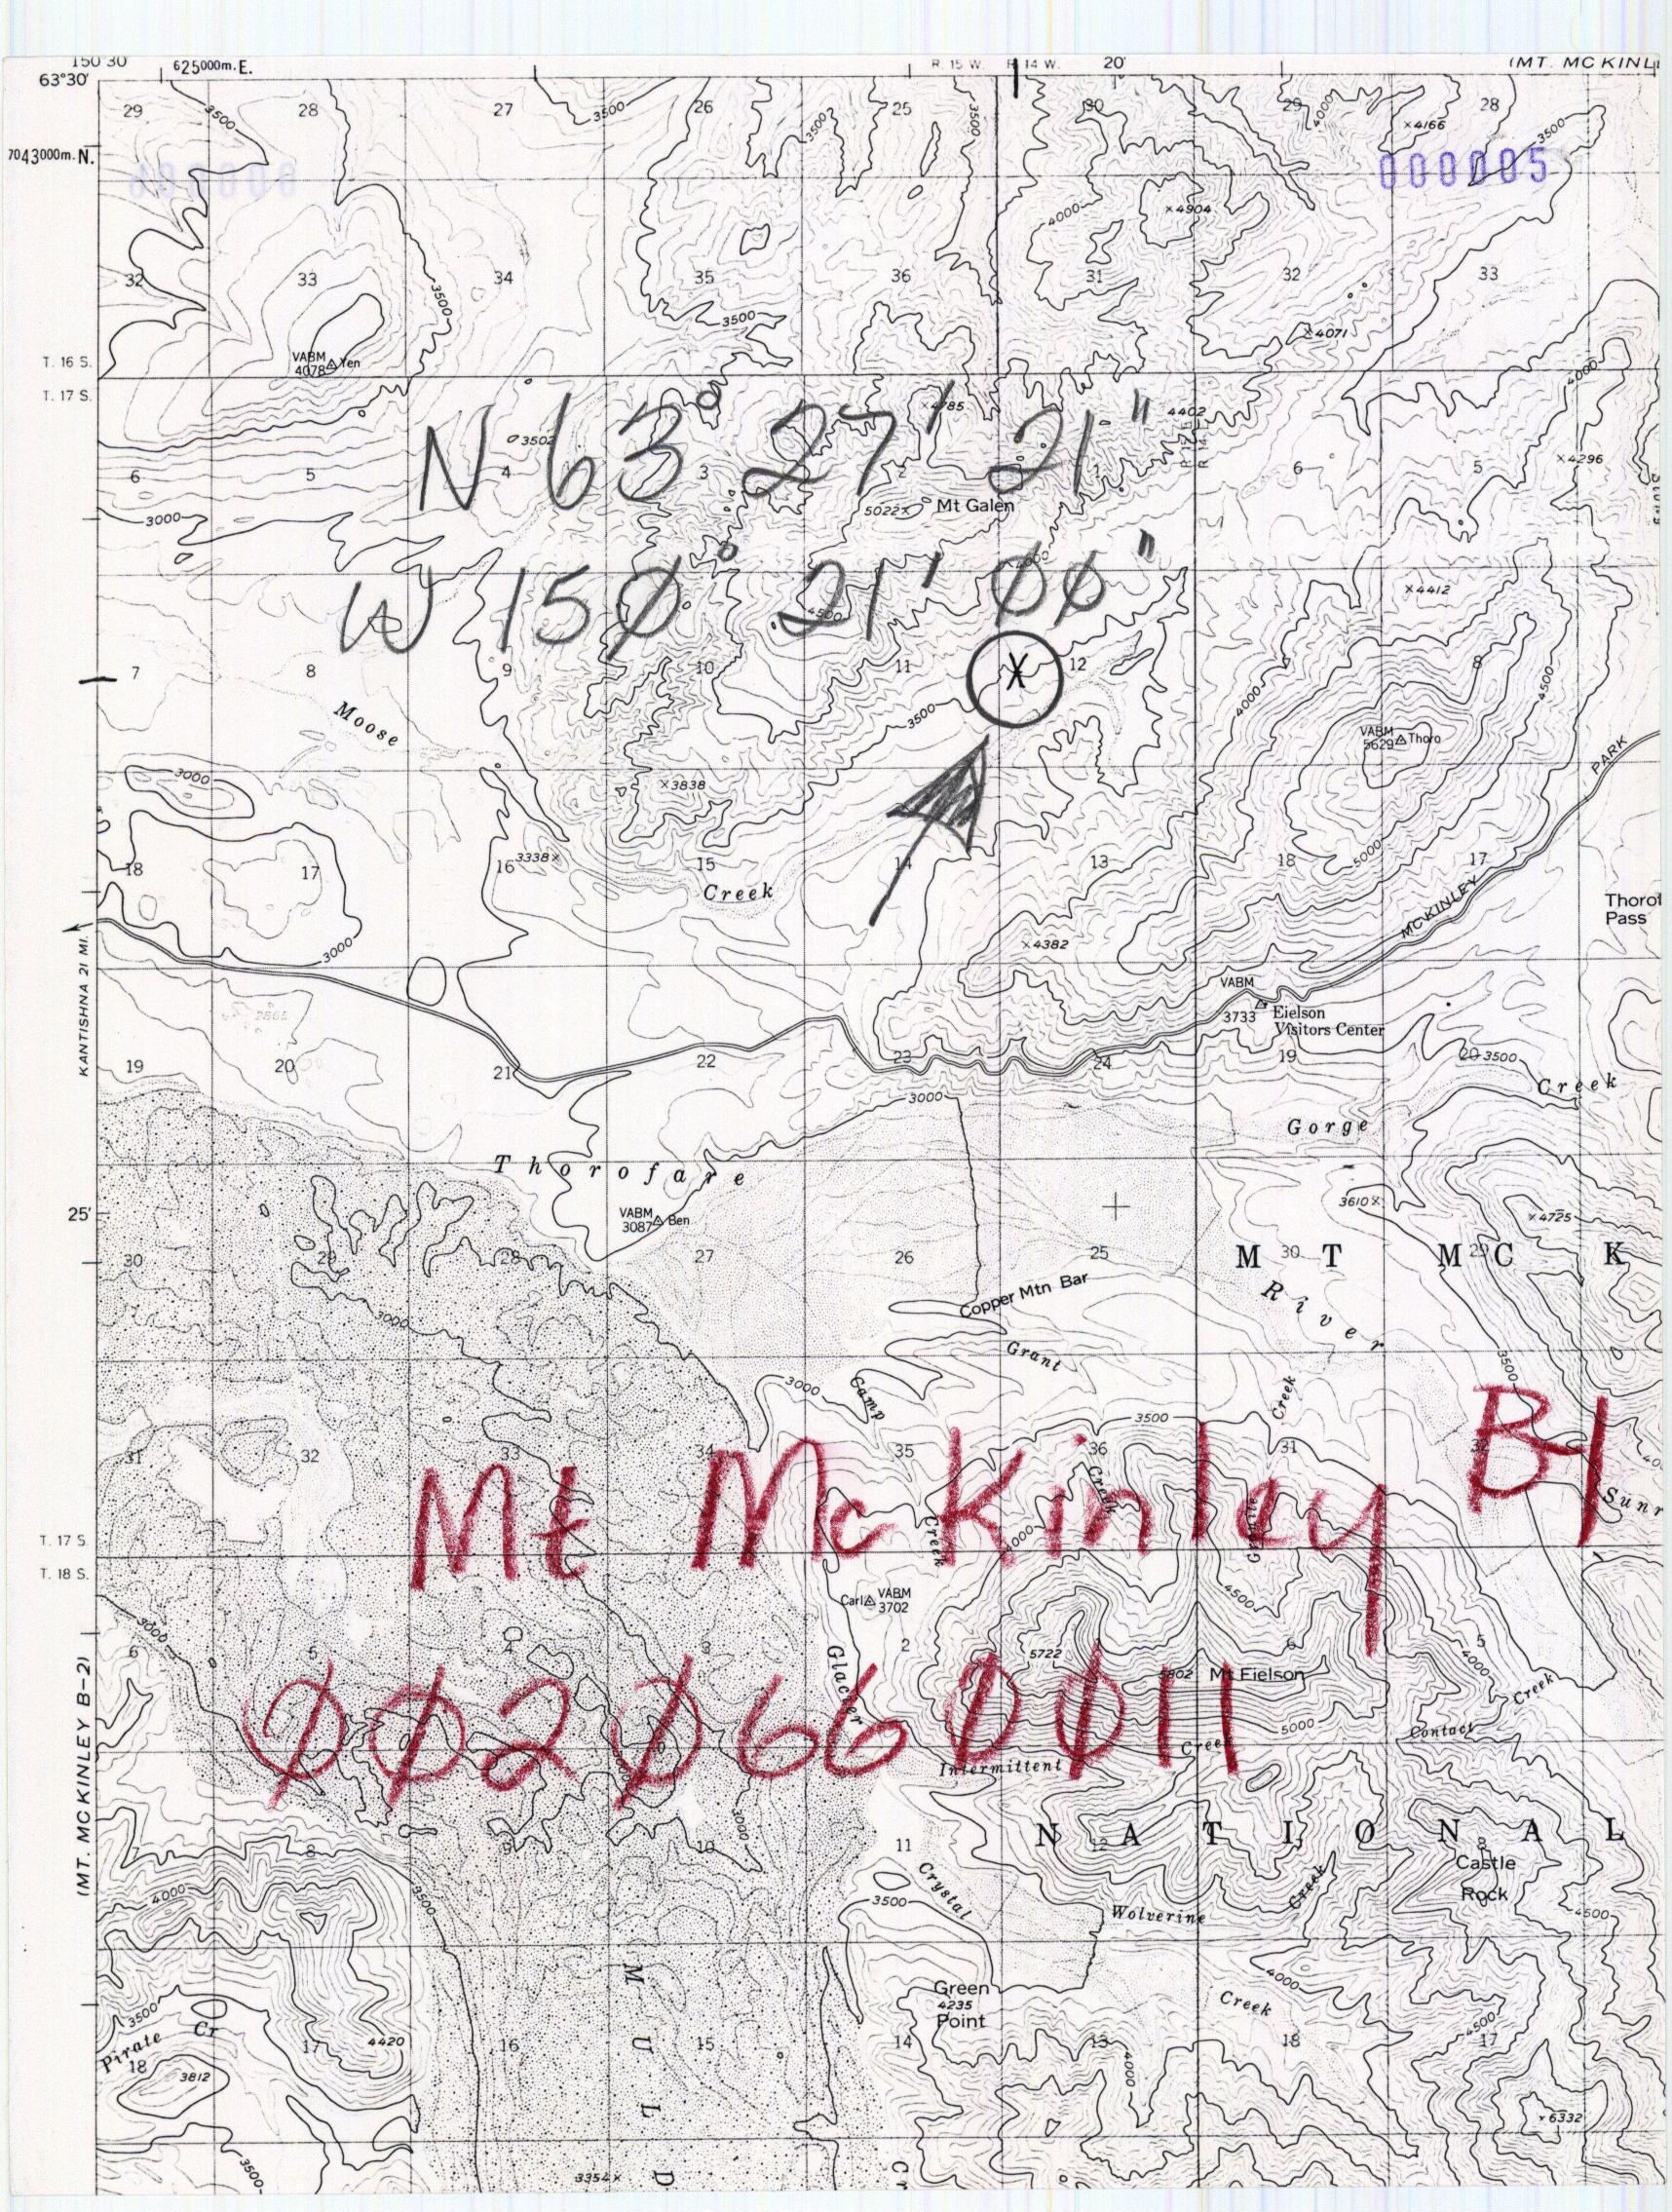 150 30' 625000m.E. R. 15 W. R. 14 W. 20' (MT. MC KINL
63°30'
29 28 27 26 25 30 29 28
3500 3500 3500 3500 4000 ×4166 3500
7043000m.N.
000005
4000 ×4904
32 33 34 35 36 31 32 33
3500 3500 ×4071
T. 16 S.
VABM
4078 Yen
T. 17 S.
4000
N 63° 27' 21"
×4785 4402
3502 ×4296
6 5 4 3 2 1 6 5
3000 5022× Mt Galen
W 150° 21' 00"
4500 ×4412
7 8 9 10 11 X 12 7 8
Moose 3500 4000 4500
VABM
5629 Thoro
PARK
3000 ×3838
3338×
18 17 16 15 14 13 18 17
Creek 5000
MCKINLEY
Thorof
Pass
KANTISHNA 21 MI.
3000 ×4382
VABM
3733 Eielson
Visitors Center
2865
19 20 21 22 23 24 19 20
3500
Creek
3000
Gorge
Thorofare
3610×
25'
VABM
3087 Ben
×4725
30 29 28 27 26 25 30 29
MT MC K
Copper Mtn Bar
River
3000
Grant
3000 Camp Creek 3500
3500
31 32 33 34 35 36 31 32
Mt McKinley B-1
Creek Creek Granite
Sunr
4000
T. 17 S.
T. 18 S.
Carl VABM
3702
4500
3000
6 5 4 3 2 5722 6 5
4000
5802 Mt Eielson
Glacier
Creek
0020660011
5000 Contact
Creek
Intermittent
3000
(MT. MCKINLEY B-2)
NATIONAL
8 9 10 11 12 8
Castle
Rock
4000 3500 3500 Crystal
Wolverine Creek
4500
4000
Green
4235
Point
Creek
3500
Pirate Cr
4500
18 17 4420 16 15 14 13 18 17
3812
4000
MULD
×6332
3500 3354× Cr